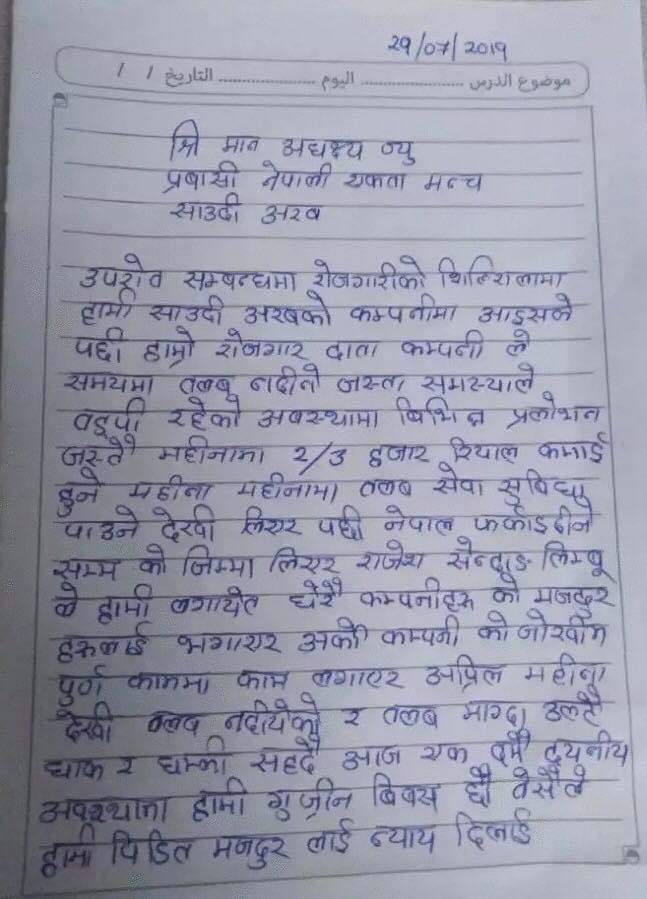 29/07/2019
موضوع الدرس ............... اليوم ............... التاريخ / /
श्रि मान अधक्ष्य ज्यु
प्रबासी नेपाली एकता मन्च
साउदी अरब
उपरोत सम्बन्धमा रोजगारीको शिलशिलामा
हामी साउदी अरबको कम्पनीमा आइसके
पछी हाम्रो रोजगार दाता कम्पनी ले
समयमा तलब नदीने जस्ता समस्याले
तड्पी रहेको अबस्थामा बिभिन्न प्रलोभन
जस्तै महीनामा २/३ हजार रियाल कमाई
हुने महीना महीनामा तलब सेवा सुबिधा
पाउने देखी लिएर पछी नेपाल फर्काइदीने
सम्म को जिम्मा लिएर राजेश सेन्दाङ लिम्बू
ले हामी लगायेत धेरै कम्पनीहरु को मजदुर
हरुलाई भगाएर अर्को कम्पनी को जोखीम
पुर्ण काममा काम लगाएर अप्रिल महीना
देखी तलब नदीयेको र तलब माग्दा उल्टै
धाक र धम्की सहदै आज एक बर्ष दयनीय
अवस्थामा हामी गुज्रीन बिबस छौ तेसैले
हामी पिडित मजदुर लाई न्याय दिलाई